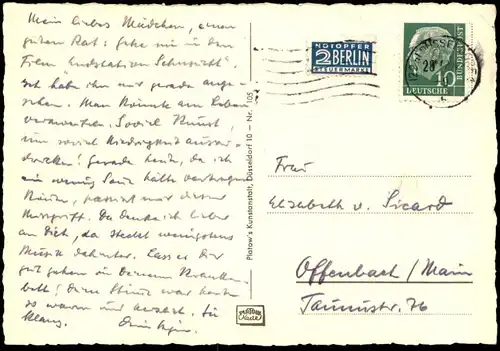 Mein liebes Mädchen, einen
guten Rat: gehe nie in den
Film "Endstation Sehnsucht".
Ich habe ihn mir gerade ange-
sehen. Man könnte am Leben
verzweifeln. Soviel Kunst,
um soviel Niedrigkeit auszu-
drücken! Gerade heute, da ich
ein wenig
passiert mir dieser
Missgriff. Da denke ich lieber
an Dich, da steckt wenigstens
Musik dahinter. Lass es Dir
gut gehen in Deinem Kranken-
bett! Deine Stimme war heute
so warm und
Klaus.
NOTOPFER
2 BERLIN
STEUERMARKE
10
DEUTSCHE
BUNDESPOST
Platow's Kunstanstalt, Düsseldorf 10 – Nr. 105
Frau
Elisabeth v. Sicard
Offenbach/Main
Taunusstr. 76